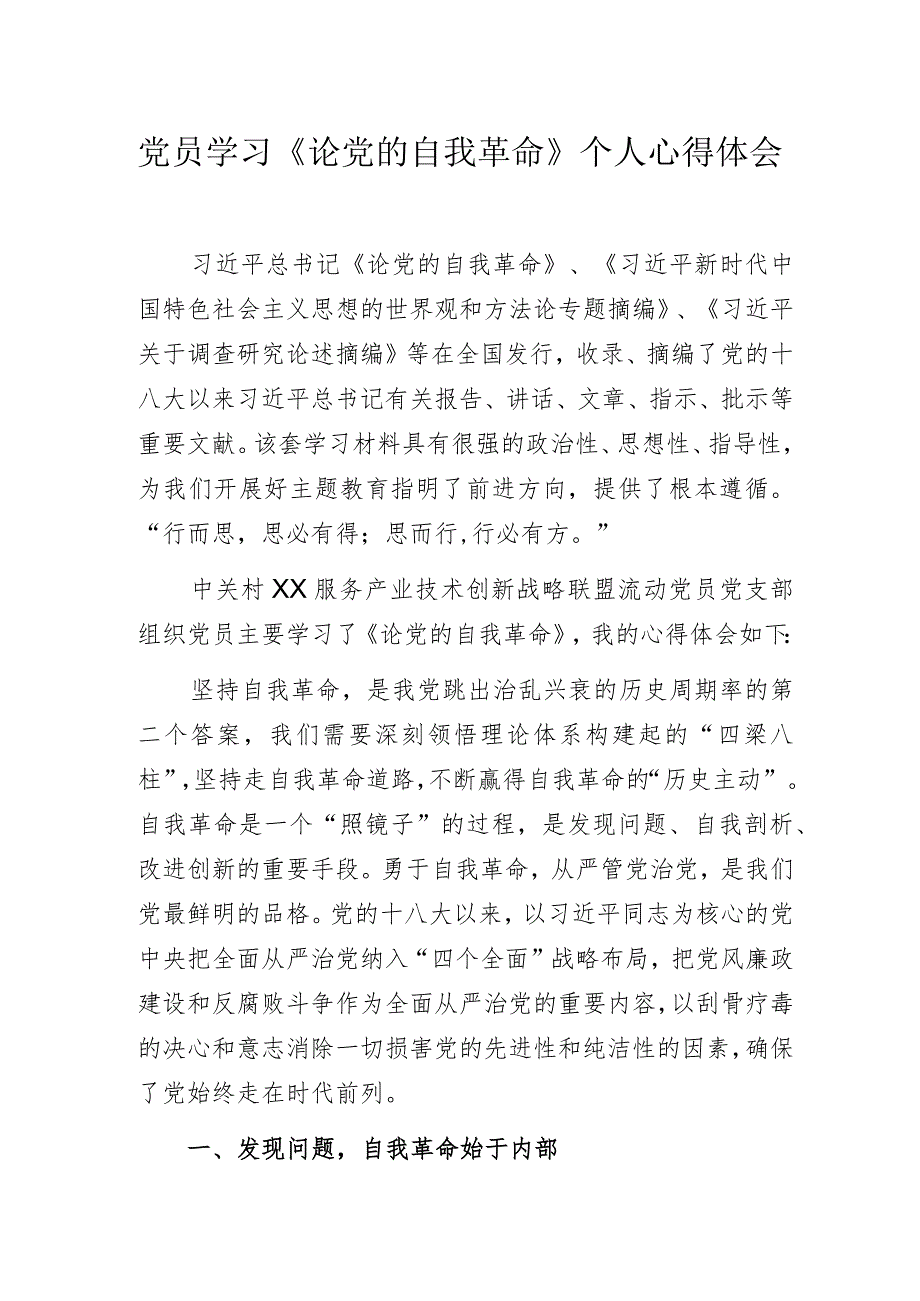 党员学习《论党的自我革命》个人心得体会
习近平总书记《论党的自我革命》、《习近平新时代中
国特色社会主义思想的世界观和方法论专题摘编》、《习近平
关于调查研究论述摘编》等在全国发行，收录、摘编了党的十
八大以来习近平总书记有关报告、讲话、文章、指示、批示等
重要文献。该套学习材料具有很强的政治性、思想性、指导性，
为我们开展好主题教育指明了前进方向，提供了根本遵循。
“行而思，思必有得；思而行,行必有方。”
中关村 XX 服务产业技术创新战略联盟流动党员党支部
组织党员主要学习了《论党的自我革命》，我的心得体会如下：
坚持自我革命，是我党跳出治乱兴衰的历史周期率的第
二个答案，我们需要深刻领悟理论体系构建起的“四梁八
柱”,坚持走自我革命道路,不断赢得自我革命的“历史主动”。
自我革命是一个“照镜子”的过程，是发现问题、自我剖析、
改进创新的重要手段。勇于自我革命，从严管党治党，是我们
党最鲜明的品格。党的十八大以来，以习近平同志为核心的党
中央把全面从严治党纳入“四个全面”战略布局，把党风廉政
建设和反腐败斗争作为全面从严治党的重要内容，以刮骨疗毒
的决心和意志消除一切损害党的先进性和纯洁性的因素,确保
了党始终走在时代前列。
一、发现问题，自我革命始于内部